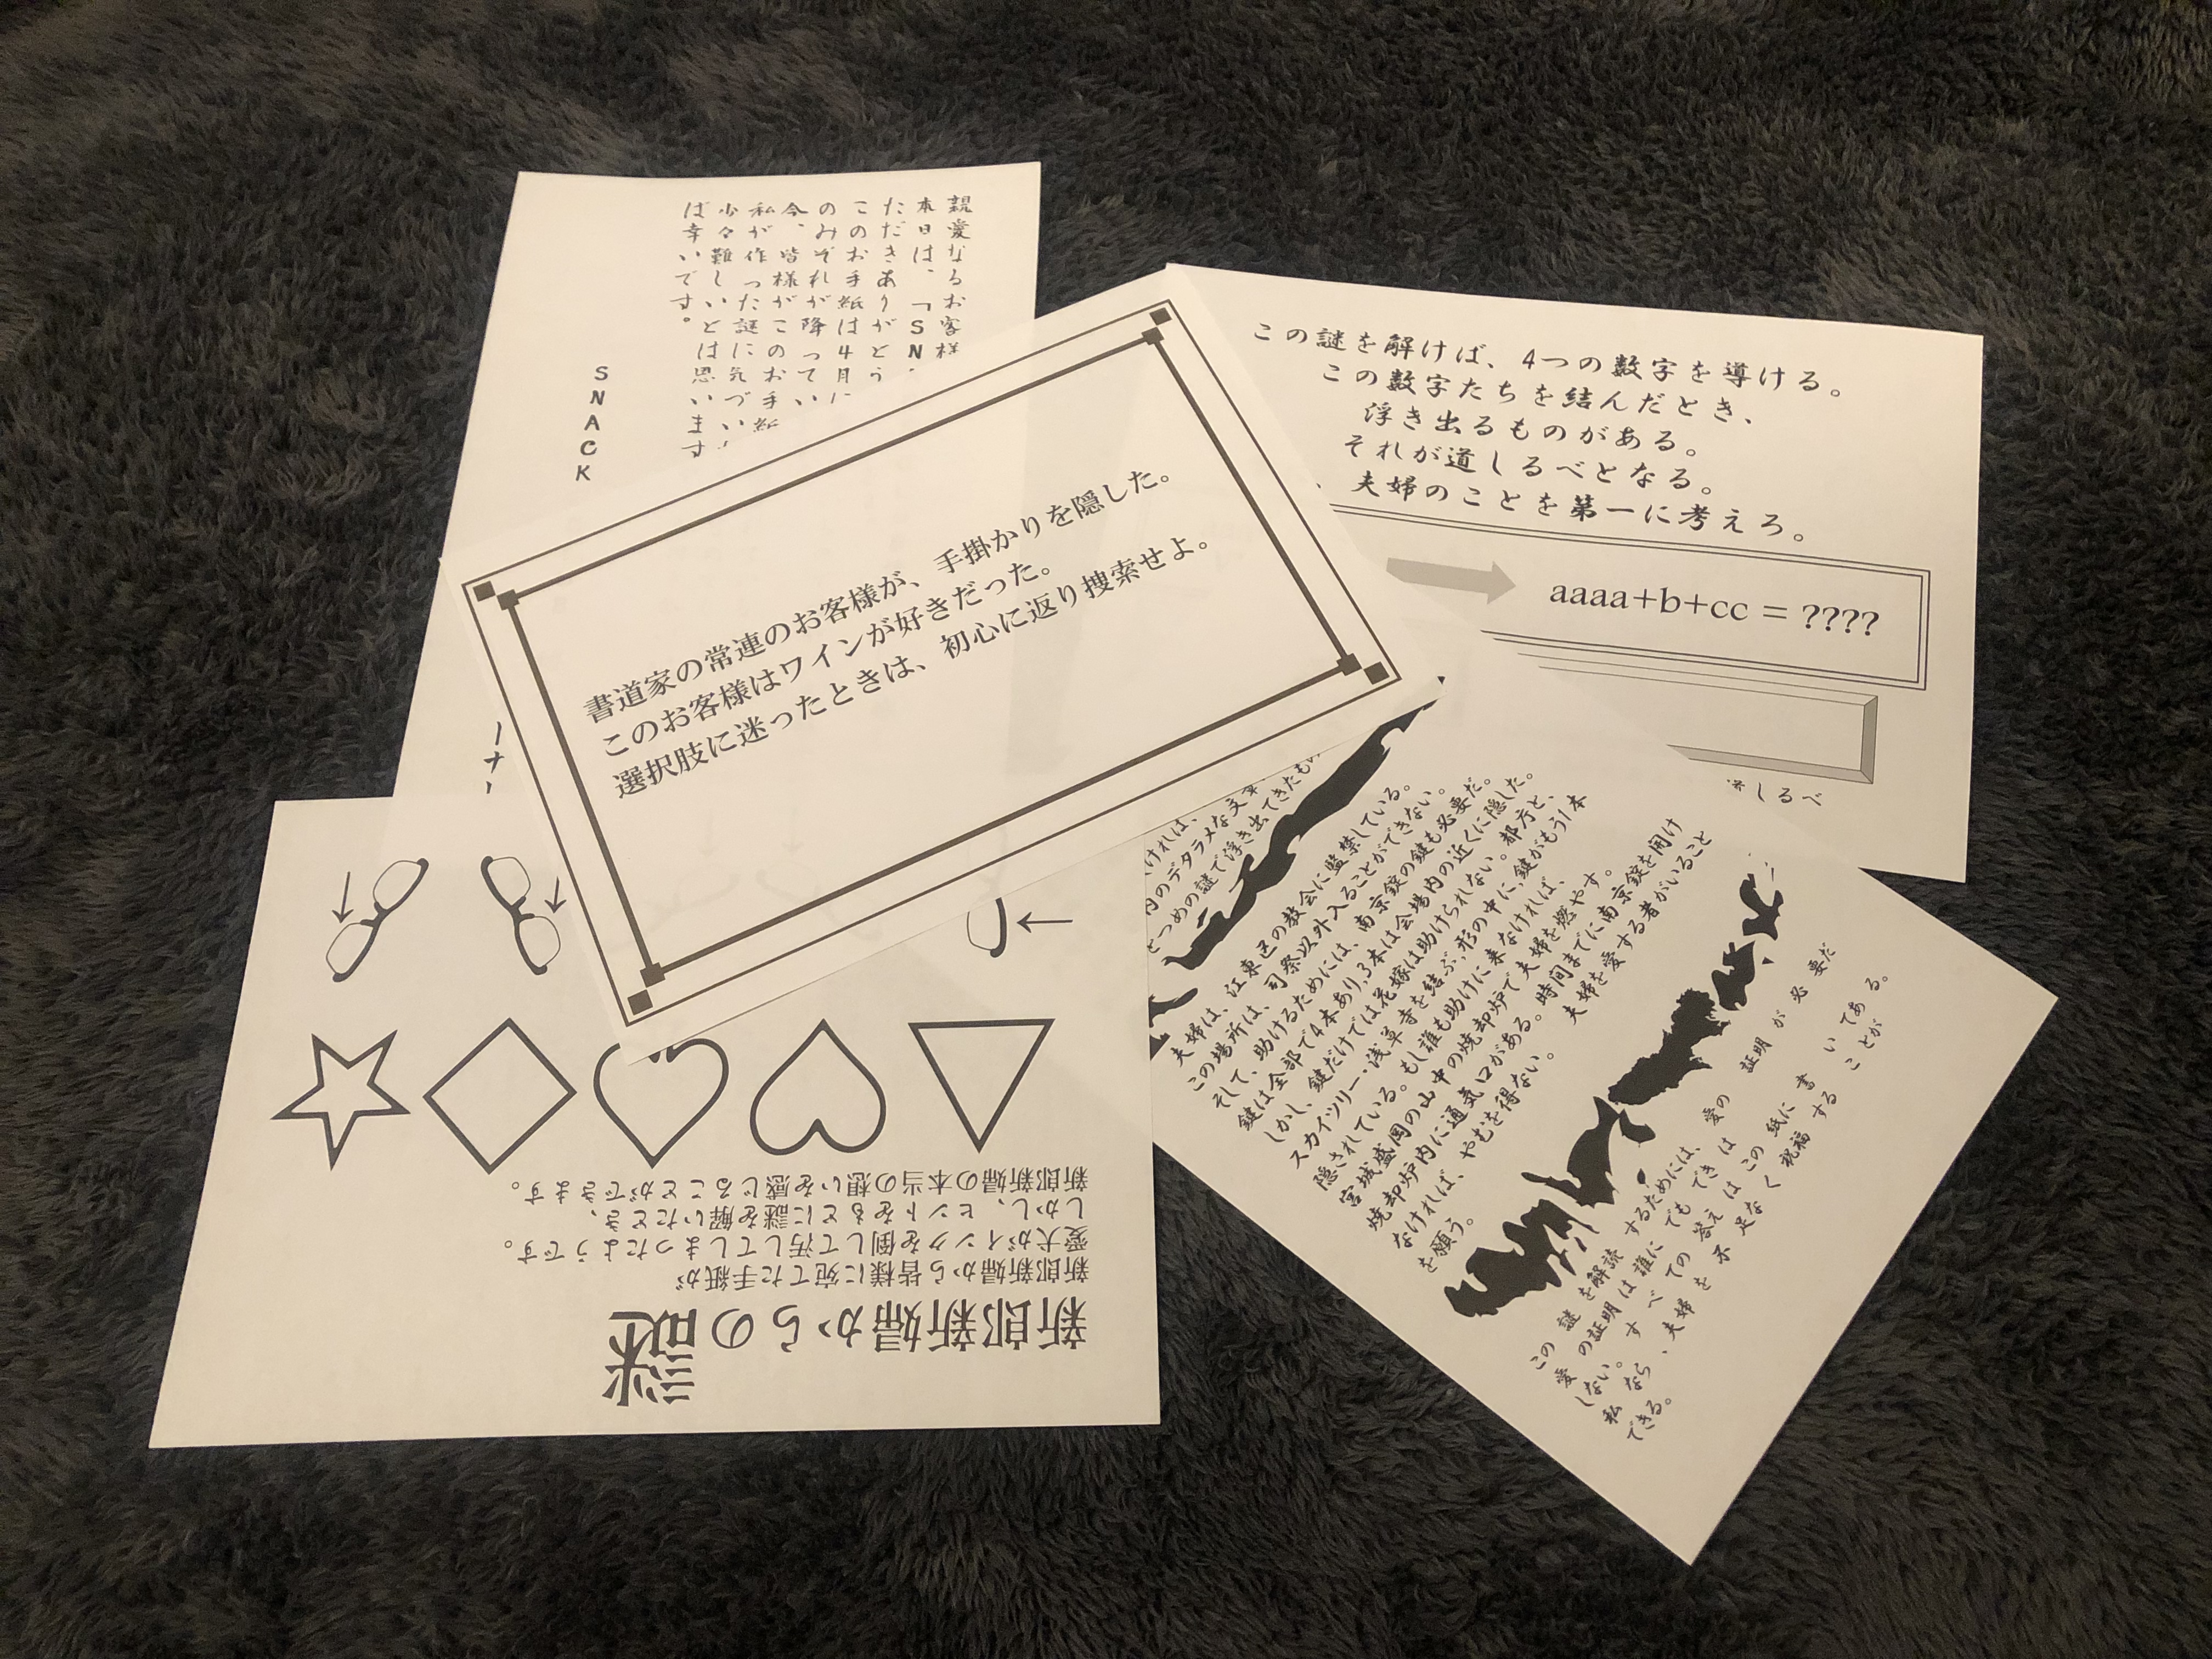 親愛なるお客様
本日は、「SN
ただきありがとう
このお手紙は4月に
のみぞれが降ってい
今、皆様がこのお手紙
私が作った謎に気づい
少々難しいとは思います
ば幸いです。
SNACK
この謎を解けば、4つの数字を導ける。
この数字たちを結んだとき、
浮き出るものがある。
それが道しるべとなる。
、夫婦のことを第一に考えろ。
aaaa+b+cc = ????
しるべ
書道家の常連のお客様が、手掛かりを隠した。
このお客様はワインが好きだった。
選択肢に迷ったときは、初心に返り捜索せよ。
新郎新婦からの謎
新郎新婦から皆様に宛てた手紙が
愛犬がインクを倒して汚してしまったようです。
しかし、ヒントをもとに謎を解いたとき、
新郎新婦の本当の想いを感じることができます。
ければ、
内のデタラメな文章
とつめの謎で浮き出てきたもの
夫婦は、江東区の教会に監禁している。
この場所は、司祭以外入ることができない。
そして、助けるためには、南京錠の鍵も必要だ。
鍵は全部で4本あり、3本は会場内の近くに隠した。
しかし、鍵だけでは花嫁は助けられない。都庁と、
スカイツリー・浅草寺を結ぶ、形の中に、鍵がもう1本
隠されている。もし誰も助けに来なければ、
宮城盛岡の山中の焼却炉で夫婦を燃やす。
焼却炉内に通気口がある。時間までに南京錠を開け
なければ、やむを得ない。夫婦を愛する者がいること
を願う。
この 謎 を解読 するためには、 愛の 証明 が 必 要だ
愛 の証明 は 誰に でも でき は
しない。 す べ ての 答え は この 紙に 書 い てあ る。
私 なら 、 夫婦 を 不 足な く 祝福 する こ とが
できる。